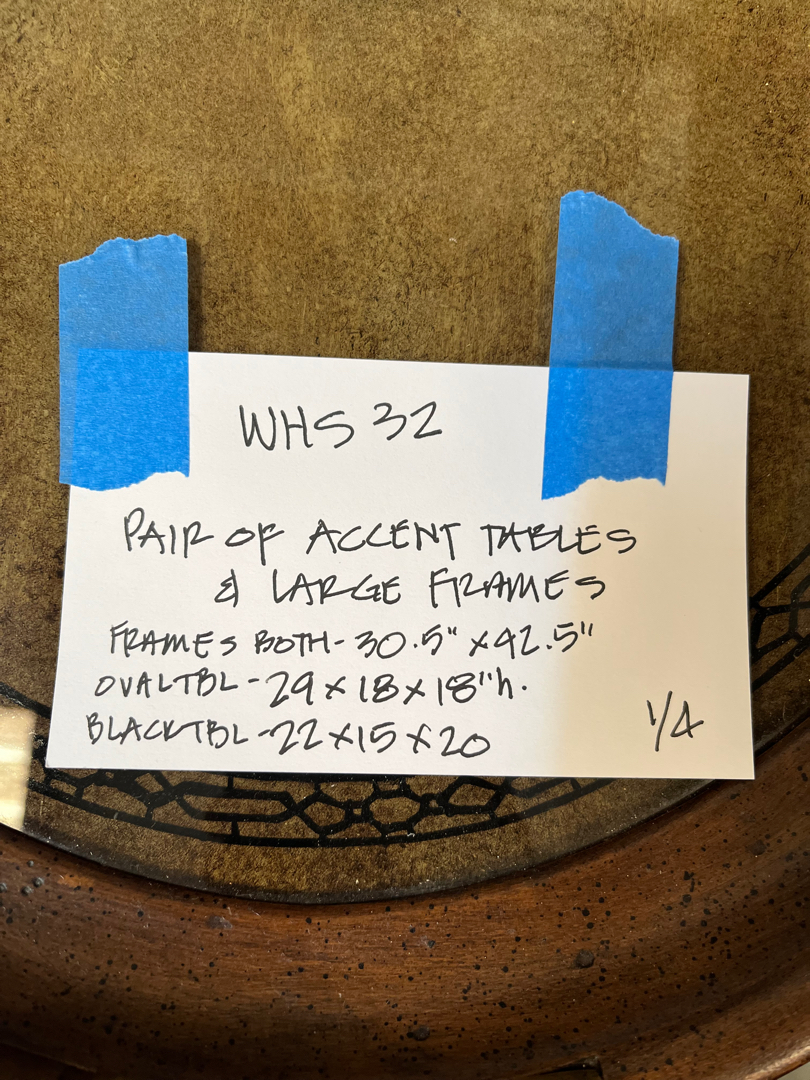 WHS 32
PAIR OF ACCENT TABLES
& LARGE FRAMES
FRAMES BOTH - 30.5" x 42.5"
OVAL TBL - 29 x 18 x 18"h.
BLACK TBL - 22 x 15 x 20
1/4